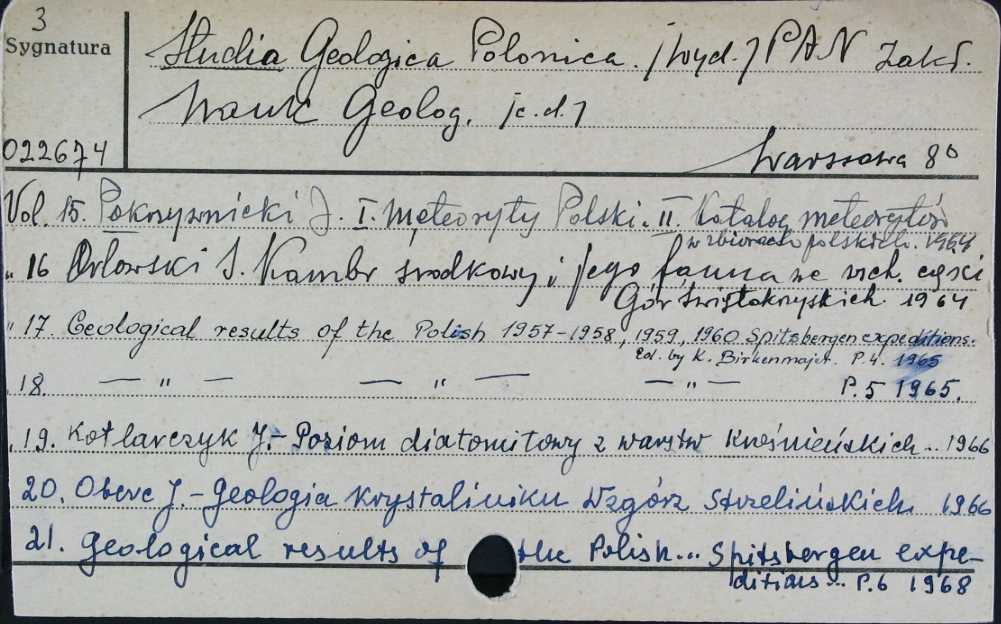 3
Sygnatura
Studia Geologica Polonica. /Wyd./ PAN Zakł.
Nauk Geolog. /c.d./
022674
Warszawa 8°
Vol. 15. Pokrzywnicki J. I. Meteoryty Polski. II. Katalog meteorytów
w zbiorach polskich. 1964
" 16 Orłowski S. Kambr środkowy i jego fauna we wsch. części
Gór Świętokrzyskich 1964
" 17. Geological results of the Polish 1957-1958, 1959, 1960 Spitsbergen expeditions.
Ed. by K. Birkenmajer. P.4. 1965
" 18. — " — — " — — " — P.5 1965.
" 19. Kotlarczyk J. - Poziom diatomitowy z warstw krośnieńskich... 1966
20. Oberc J. - Geologia krystaliniku Wzgórz Strzelińskich 1966
21. Geological results of the Polish... Spitsbergen expe-
ditions... P.6 1968